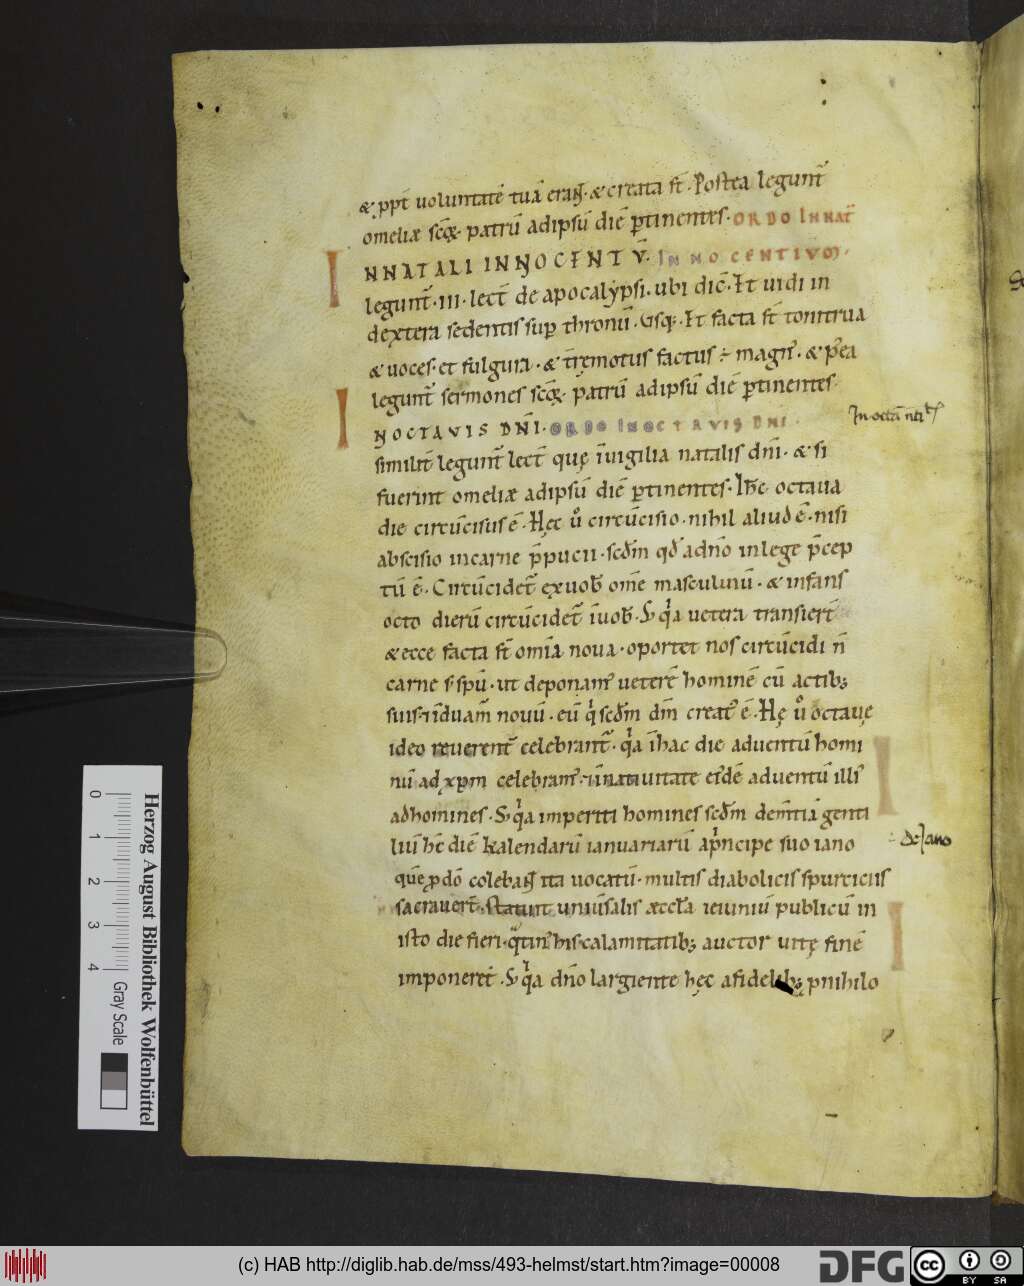 & ꝓpt̄ uoluntatē tuā eraɴ̄t. & creata st̄. Postea legunt̄
omeliæ sc̄oꝝ patrū adipsū diē ꝑtinentes. ORDO INNAT̄
INNATALI INNOCENTŪ. INNOCENTIVM.
legunt̄. III. lect̄ de apocalẏpsi. ubi dic̄. Et uidi in
dextera sedentis sup thronū. Vsq;. Et facta st̄ tonitrua
& uoces. et fulgura. & t̄remotus factus ÷ magn̄. & p̄ea
legunt̄ sermones sc̄oꝝ patrū adipsū diē ꝑtinentes.
INOCTAVIS DN̄I. ORDO INOCTAVIS DNI.
In octā nti
similit̄ legunt̄ lect̄ quę īuigilia natalis dn̄i. & si
fuerint omeliæ adipsū diē ꝑtinentes. Ihc̄ octaua
die circūcisus ē. Hęc ů circūcisio. nihil aliud ē. nisi
abscisio incarne p̄pucii. scd̄m qd̄ adn̄o inlege p̄cep
tū ē. Circūcidet̄ ex uob̄ om̄e masculinū. & infans
octo dierū circūcidet̄ īuob̄. S; qͥa uetera transiert̄
& ecce facta st̄ om̄ia noua. oportet nos circūcidi n̄
carne s; sp̄u. ut deponam᷒ ueterē hominē cū actib;
suis. īduam᷒ nouū. eū qͥ scd̄m dm̄ creat᷒ ē. Hę ů octauę
ideo reuerent̄ celebrant̄. qͥa īhac die aduentū homi
nū ad xp̄m celebram᷒. īnatiuitate eͥdē aduentū illi᷒
adhomines. S; qͥa imperiti homines scd̄m dem̄tiā genti
liū hc̄ diē kalendarū ianuariarū ap̄ncipe suo iano
De Jano
quē ꝓdō colebant ita uocatū. multis diabolicis spurciciis
sacrauert̄. statuit uniūsalis æccl̄a ieiuniū publicū in
isto die fieri. qͣtin᷒ his calamitatib; auctor uitę finē
imponeret. S; qͥa dn̄o largiente hęc afidelib; pnihilo
Herzog August Bibliothek Wolfenbüttel
0 1 2 3 4 Gray Scale
(c) HAB http://diglib.hab.de/mss/493-helmst/start.htm?image=00008
DFG cc BY SA